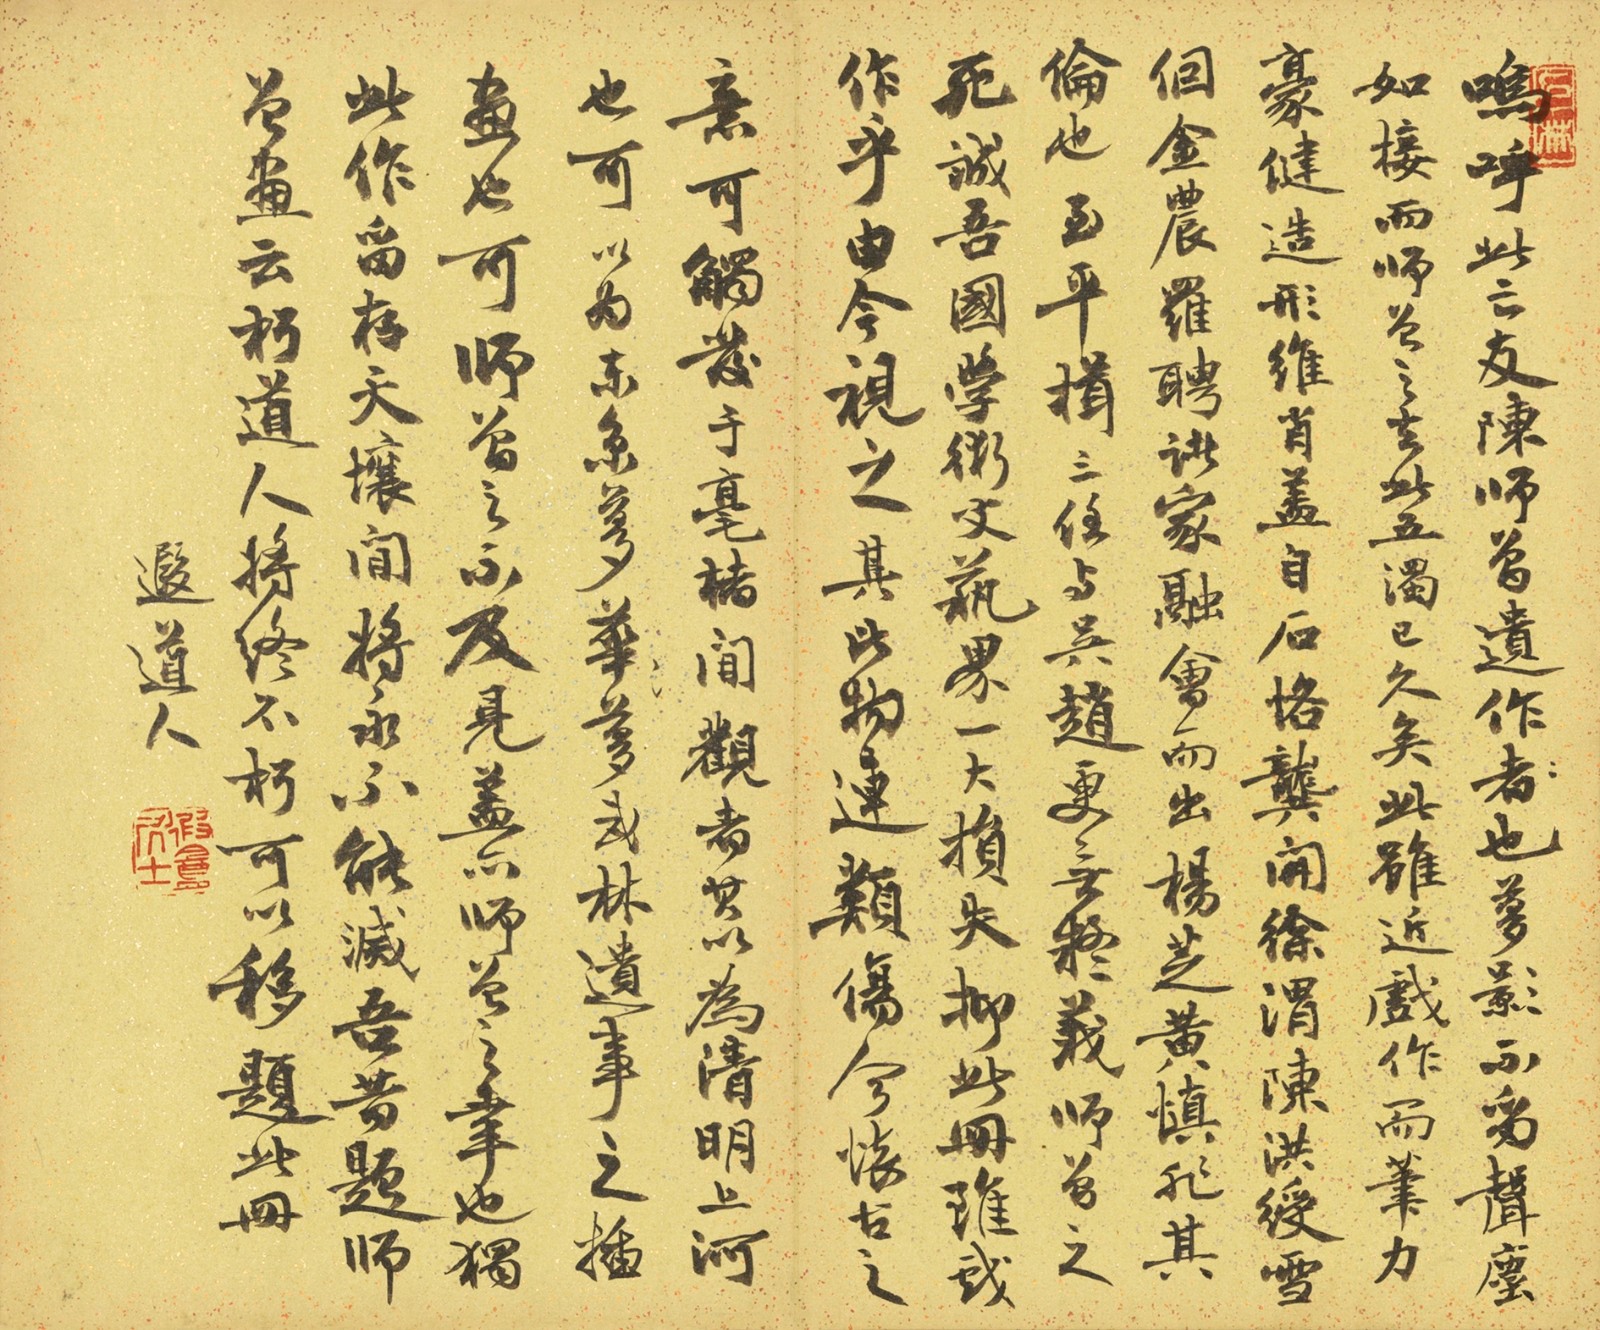 嗚呼此亡友陳師曾遺作者也夢影不留聲塵
如接而師曾之去此五濁已久矣此雖近戲作而筆力
豪健造形維肖蓋自石恪龔開徐渭陳洪綬雪
個金農羅聘諸家融會而出楊芝黃慎非其
倫也至平揖三任與吳趙更無疑義師曾之
死誠吾國學術文藝界一大損失抑此冊雖戲
作乎由今視之其比物連類傷今懷古之
意可觸發于毫楮間觀者其以為清明上河
也可以為東京夢華夢武林遺事之插
畫也可師曾之不可及見蓋亦師曾之幸也獨
此作留存天壤間將永不能滅吾昔題師
曾畫云朽道人將終不朽可以移題此冊
遐道人